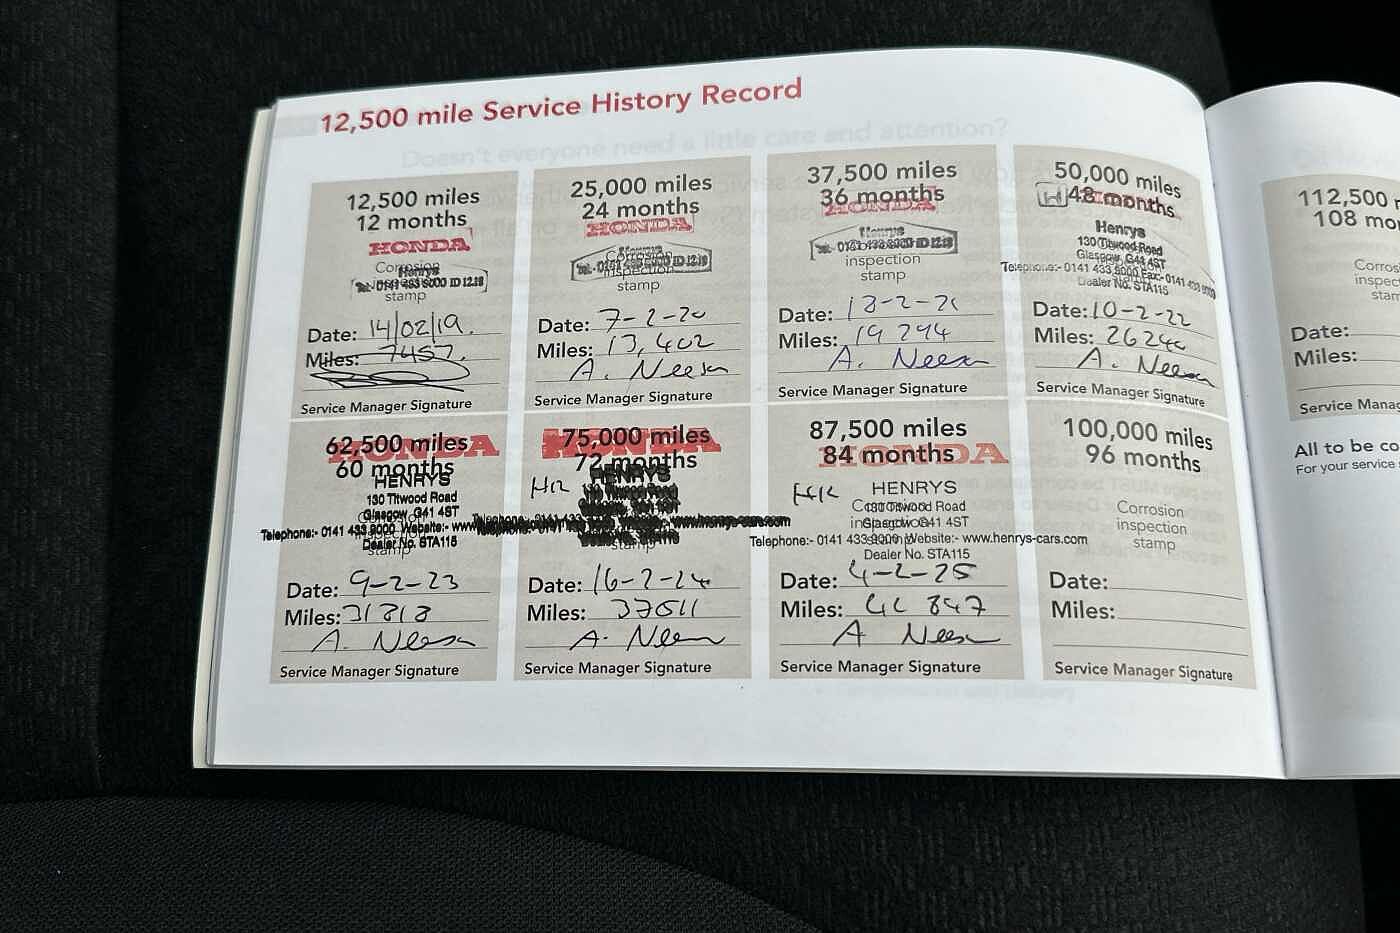 12,500 mile Service History Record
12,500 miles
12 months
HONDA
Corrosion
Henrys
Tel:- 0141 433 9000 ID 12.18
stamp
Date: 14/02/19.
Miles: 7457.
Service Manager Signature
25,000 miles
24 months
HONDA
Henrys
inspection
stamp
Date: 7-2-20
Miles: 13,402
A. Neeson
Service Manager Signature
37,500 miles
36 months
HONDA
Henrys
inspection
stamp
Date: 18-2-21
Miles: 19 294
A. Neeson
Service Manager Signature
50,000 miles
48 months
Henrys
130 Titwood Road
Glasgow, G41 4ST
Telephone:- 0141 433 9000 Fax:- 0141 433 9000
Dealer No. STA115
Date: 10-2-22
Miles: 26240
A. Neeson
Service Manager Signature
62,500 miles
60 months
HONDA
HENRYS
130 Titwood Road
Glasgow, G41 4ST
Telephone:- 0141 433 9000 Website:- www
Dealer No. STA115
stamp
Date: 9-2-23
Miles: 31818
A. Neeson
Service Manager Signature
75,000 miles
72 months
HONDA
HENRYS
www.henrys-cars.com
stamp
Date: 16-2-24
Miles: 37511
A. Neeson
Service Manager Signature
87,500 miles
84 months
HONDA
HENRYS
130 Titwood Road
Glasgow G41 4ST
Telephone:- 0141 433 9000 Website:- www.henrys-cars.com
Dealer No. STA115
Date: 4-2-25
Miles: 41 847
A Neeson
Service Manager Signature
100,000 miles
96 months
Corrosion
inspection
stamp
Date:
Miles:
Service Manager Signature
112,500
108 mo
Corros
inspec
stam
Date:
Miles:
Service Manag
All to be co
For your service